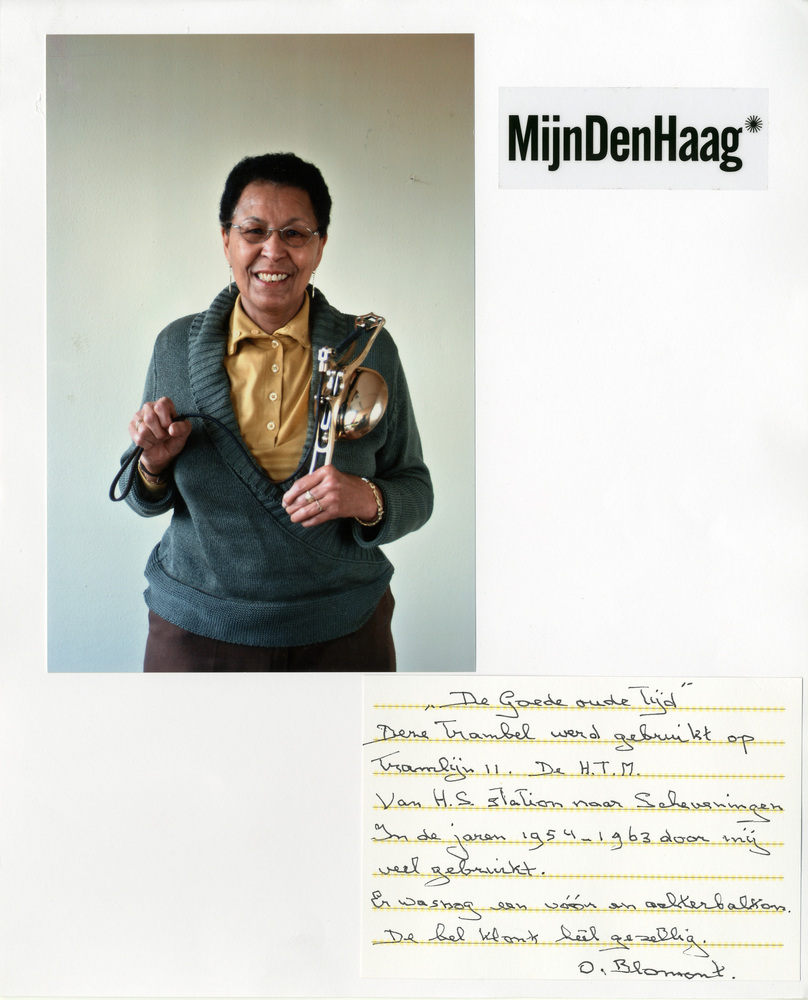 MijnDenHaag*
„De Goede oude Tijd"
Deze Trambel werd gebruikt op
Tramlijn 11. De H.T.M.
Van H.S. station naar Scheveningen
In de jaren 1954-1963 door mij
veel gebruikt.
Er was nog een vóór en achterbalkon.
De bel klonk heel gezellig.
O. Blomont.